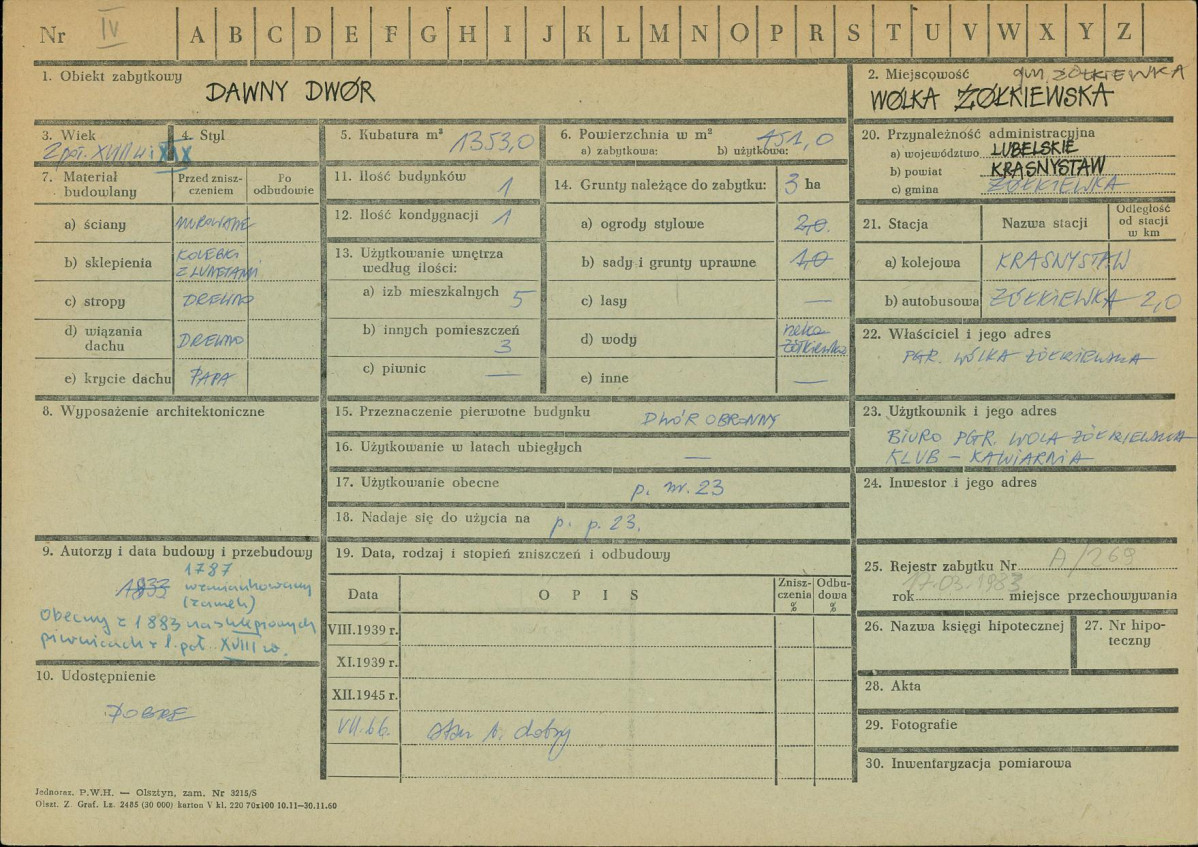 Nr IV A B C D E F G H I J K L M N O P R S T U V W X Y Z
1. Obiekt zabytkowy
DAWNY DWÓR
2. Miejscowość gm. ŻÓŁKIEWKA
WÓLKA ŻÓŁKIEWSKA
3. Wiek
2 poł. XVIII w i XIX
4. Styl
5. Kubatura m³ 1353,0
6. Powierzchnia w m²
a) zabytkowa: b) użytkowa: 451,0
7. Materiał budowlany
Przed zniszczeniem
Po odbudowie
a) ściany MUROWANE
b) sklepienia KOLEBKI
Z LUNETAMI
c) stropy DREWNO
d) wiązania dachu DREWNO
e) krycie dachu PAPA
8. Wyposażenie architektoniczne
9. Autorzy i data budowy i przebudowy
1787
1833 wzmiankowany
(zamek)
Obecny z 1883 na sklepionych
piwnicach z 1. poł. XVIII w.
10. Udostępnienie
DOBRE
11. Ilość budynków 1
12. Ilość kondygnacji 1
13. Użytkowanie wnętrza
według ilości:
a) izb mieszkalnych 5
b) innych pomieszczeń
3
c) piwnic —
14. Grunty należące do zabytku: 3 ha
a) ogrody stylowe 2,0.
b) sady i grunty uprawne 1,0
c) lasy —
d) wody rzeka
Żółkiewka
e) inne —
15. Przeznaczenie pierwotne budynku DWÓR OBRONNY
16. Użytkowanie w latach ubiegłych —
17. Użytkowanie obecne p. nr. 23
18. Nadaje się do użycia na p. p. 23.
19. Data, rodzaj i stopień zniszczeń i odbudowy
Data
O P I S
Zniszczenia %
Odbudowa %
VIII.1939 r.
XI.1939 r.
XII.1945 r.
VII.66. stan b. dobry
20. Przynależność administracyjna
a) województwo LUBELSKIE
b) powiat KRASNYSTAW
c) gmina ŻÓŁKIEWKA
21. Stacja
Nazwa stacji
Odległość od stacji w km
a) kolejowa KRASNYSTAW
b) autobusowa ŻÓŁKIEWKA 2,0
22. Właściciel i jego adres
PGR. WÓLKA ŻÓŁKIEWSKA
23. Użytkownik i jego adres
BIURO PGR. WOLA ŻÓŁKIEWSKA
KLUB – KAWIARNIA
24. Inwestor i jego adres
25. Rejestr zabytku Nr A/269
rok 17.03.1983 miejsce przechowywania
26. Nazwa księgi hipotecznej
27. Nr hipoteczny
28. Akta
29. Fotografie
30. Inwentaryzacja pomiarowa
Jednoraz. P.W.H. — Olsztyn, zam. Nr 3215/S
Olszt. Z. Graf. Lz. 2485 (30 000) karton V kl. 220 70x100 10.11—30.11.60